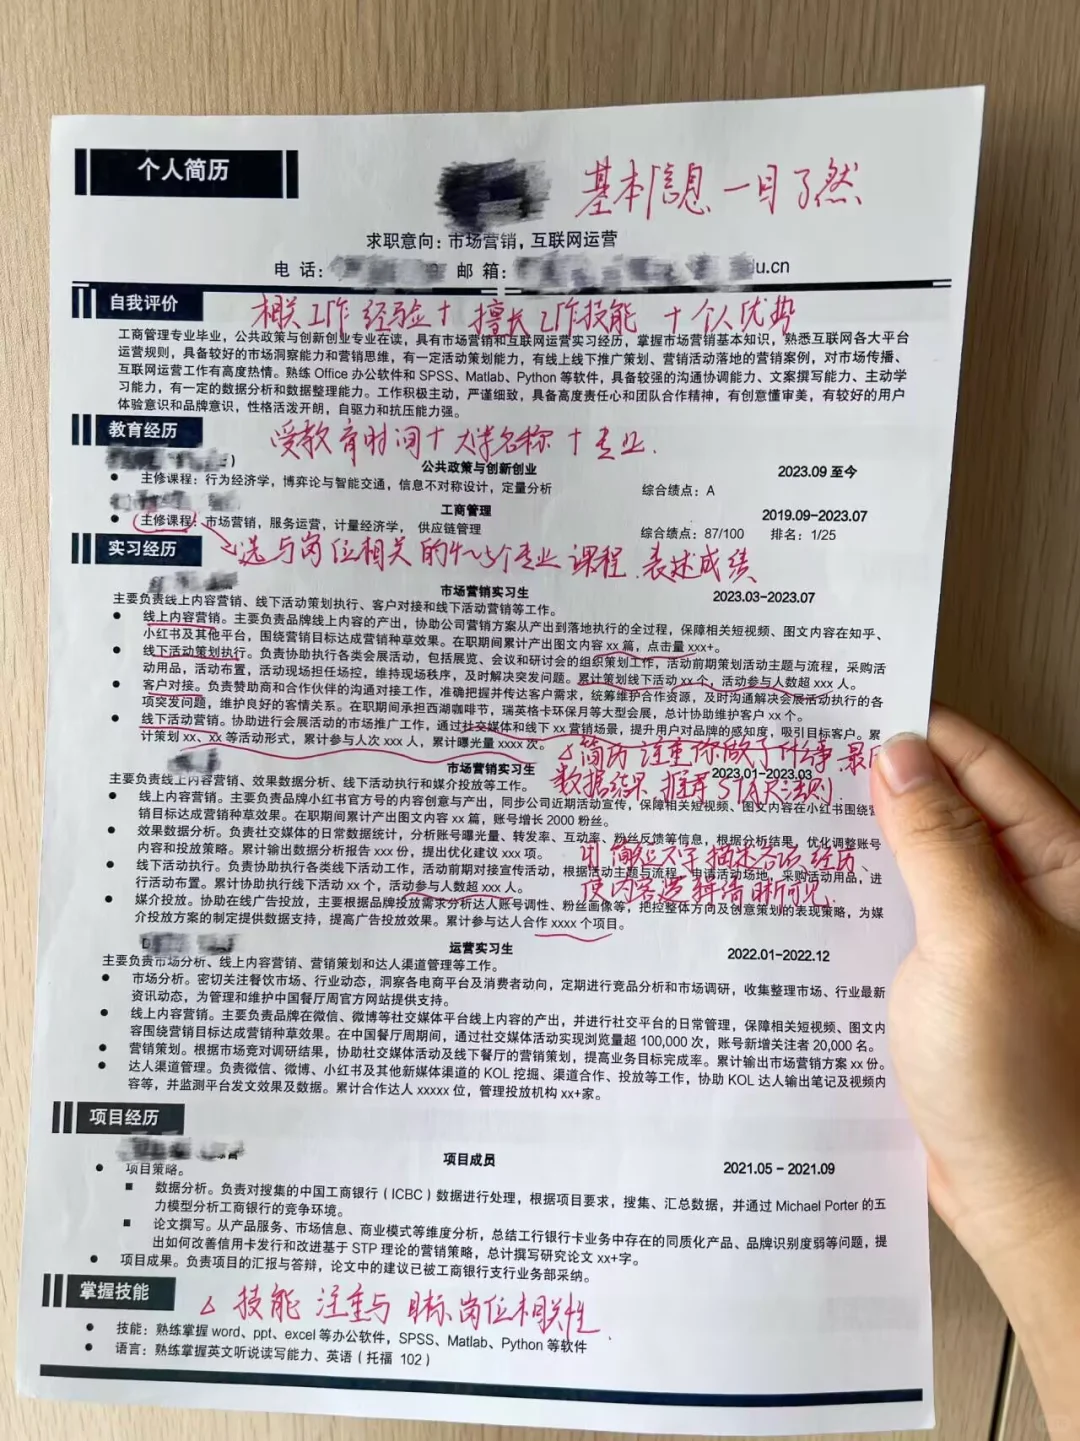 个人简历
基本信息 一目了然
求职意向：市场营销，互联网运营
电 话： 邮 箱： du.cn
自我评价
相关工作经验+擅长工作技能+个人优势
工商管理专业毕业，公共政策与创新创业专业在读，具有市场营销和互联网运营实习经历，掌握市场营销基本知识，熟悉互联网各大平台
运营规则，具备较好的市场洞察能力和营销思维，有一定活动策划能力，有线上线下推广策划、营销活动落地的营销案例，对市场传播、
互联网运营工作有高度热情。熟练 Office 办公软件和 SPSS、Matlab、Python 等软件，具备较强的沟通协调能力、文案撰写能力、主动学
习能力，有一定的数据分析和数据整理能力。工作积极主动，严谨细致，具备高度责任心和团队合作精神，有创意懂审美，有较好的用户
体验意识和品牌意识，性格活泼开朗，自驱力和抗压能力强。
教育经历
受教育时间+大学名称+专业.
公共政策与创新创业 2023.09 至今
● 主修课程：行为经济学，博弈论与智能交通，信息不对称设计，定量分析 综合绩点：A
工商管理 2019.09-2023.07
● 主修课程：市场营销，服务运营，计量经济学， 供应链管理 综合绩点：87/100 排名：1/25
实习经历
选与岗位相关的4~5个专业课程.表述成绩
市场营销实习生 2023.03-2023.07
主要负责线上内容营销、线下活动策划执行、客户对接和线下活动营销等工作。
● 线上内容营销。主要负责品牌线上内容的产出，协助公司营销方案从产出到落地执行的全过程，保障相关短视频、图文内容在知乎、
小红书及其他平台，围绕营销目标达成营销种草效果。在职期间累计产出图文内容 xx 篇，点击量 xxx+。
● 线下活动策划执行。负责协助执行各类会展活动，包括展览、会议和研讨会的组织策划工作，活动前期策划活动主题与流程，采购活
动用品，活动布置，活动现场担任场控，维持现场秩序，及时解决突发问题。累计策划线下活动 xx 个，活动参与人数超 xxx 人。
● 客户对接。负责赞助商和合作伙伴的沟通对接工作，准确把握并传达客户需求，统筹维护合作资源，及时沟通解决会展活动执行的各
项突发问题，维护良好的客情关系。在职期间承担西湖咖啡节，瑞英格卡环保月等大型会展，总计协助维护客户 xx 个。
● 线下活动营销。协助进行会展活动的市场推广工作，通过社交媒体和线下 xx 营销场景，提升用户对品牌的感知度，吸引目标客户。累
计策划 xx、xx 等活动形式，累计参与人次 xxx 人，累计曝光量 xxxx 次。
△简历注重你做了什么事.最后
数据结果.推荐STAR法则.
市场营销实习生 2023.01-2023.03
主要负责线上内容营销、效果数据分析、线下活动执行和媒介投放等工作。
● 线上内容营销。主要负责品牌小红书官方号的内容创意与产出，同步公司近期活动宣传，保障相关短视频、图文内容在小红书围绕营
销目标达成营销种草效果。在职期间累计产出图文内容 xx 篇，账号增长 2000 粉丝。
● 效果数据分析。负责社交媒体的日常数据统计，分析账号曝光量、转发率、互动率、粉丝反馈等信息，根据分析结果，优化调整账号
内容和投放策略。累计输出数据分析报告 xxx 份，提出优化建议 xxx 项。
用简短文字描述各项经历，
使内容逻辑清晰可见.
● 线下活动执行。负责协助执行各类线下活动工作，活动前期对接宣传活动，根据活动主题与流程，申请活动场地，采购活动用品，进
行活动布置。累计协助执行线下活动 xx 个，活动参与人数超 xxx 人。
● 媒介投放。协助在线广告投放，主要根据品牌投放需求分析达人账号调性、粉丝画像等，把控整体方向及创意策划的表现策略，为媒
介投放方案的制定提供数据支持，提高广告投放效果。累计参与达人合作 xxxx 个项目。
运营实习生 2022.01-2022.12
主要负责市场分析、线上内容营销、营销策划和达人渠道管理等工作。
● 市场分析。密切关注餐饮市场、行业动态，洞察各电商平台及消费者动向，定期进行竞品分析和市场调研，收集整理市场、行业最新
资讯动态，为管理和维护中国餐厅周官方网站提供支持。
● 线上内容营销。主要负责品牌在微信、微博等社交媒体平台线上内容的产出，并进行社交平台的日常管理，保障相关短视频、图文内
容围绕营销目标达成营销种草效果。在中国餐厅周期间，通过社交媒体活动实现浏览量超 100,000 次，账号新增关注者 20,000 名。
● 营销策划。根据市场竞对调研结果，协助社交媒体活动及线下餐厅的营销策划，提高业务目标完成率。累计输出市场营销方案 xx 份。
● 达人渠道管理。负责微信、微博、小红书及其他新媒体渠道的 KOL 挖掘、渠道合作、投放等工作，协助 KOL 达人输出笔记及视频内
容等，并监测平台发文效果及数据。累计合作达人 xxxxx 位，管理投放机构 xx+家。
项目经历
项目成员 2021.05 - 2021.09
● 项目策略。
■ 数据分析。负责对搜集的中国工商银行（ICBC）数据进行处理，根据项目要求，搜集、汇总数据，并通过 Michael Porter 的五
力模型分析工商银行的竞争环境。
■ 论文撰写。从产品服务、市场信息、商业模式等维度分析，总结工行银行卡业务中存在的同质化产品、品牌识别度弱等问题，提
出如何改善信用卡发行和改进基于 STP 理论的营销策略，总计撰写研究论文 xx+字。
● 项目成果。负责项目的汇报与答辩，论文中的建议已被工商银行支行业务部采纳。
掌握技能
△ 技能 注重与目标岗位相关性.
● 技能：熟练掌握 word、ppt、excel 等办公软件，SPSS、Matlab、Python 等软件
● 语言：熟练掌握英文听说读写能力、英语（托福 102）